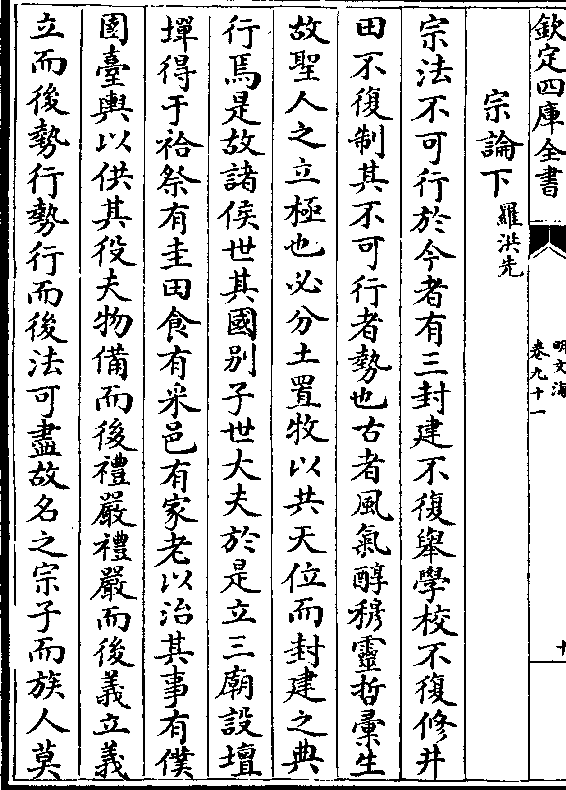 欽定四庫全書
明文海
卷九十一
宗論下 羅洪先
宗法不可行於今者有三封建不復舉學校不復修井
田不復制其不可行者勢也古者風氣醇穆靈哲彚生
故聖人之立極也必分土置牧以共天位而封建之典
行焉是故諸侯世其國别子世大夫於是立三廟設壇
墠得于祫祭有圭田食有采邑有家老以治其事有僕
圉臺輿以供其役夫物備而後禮嚴禮嚴而後義立義
立而後勢行勢行而後法可盡故名之宗子而族人莫